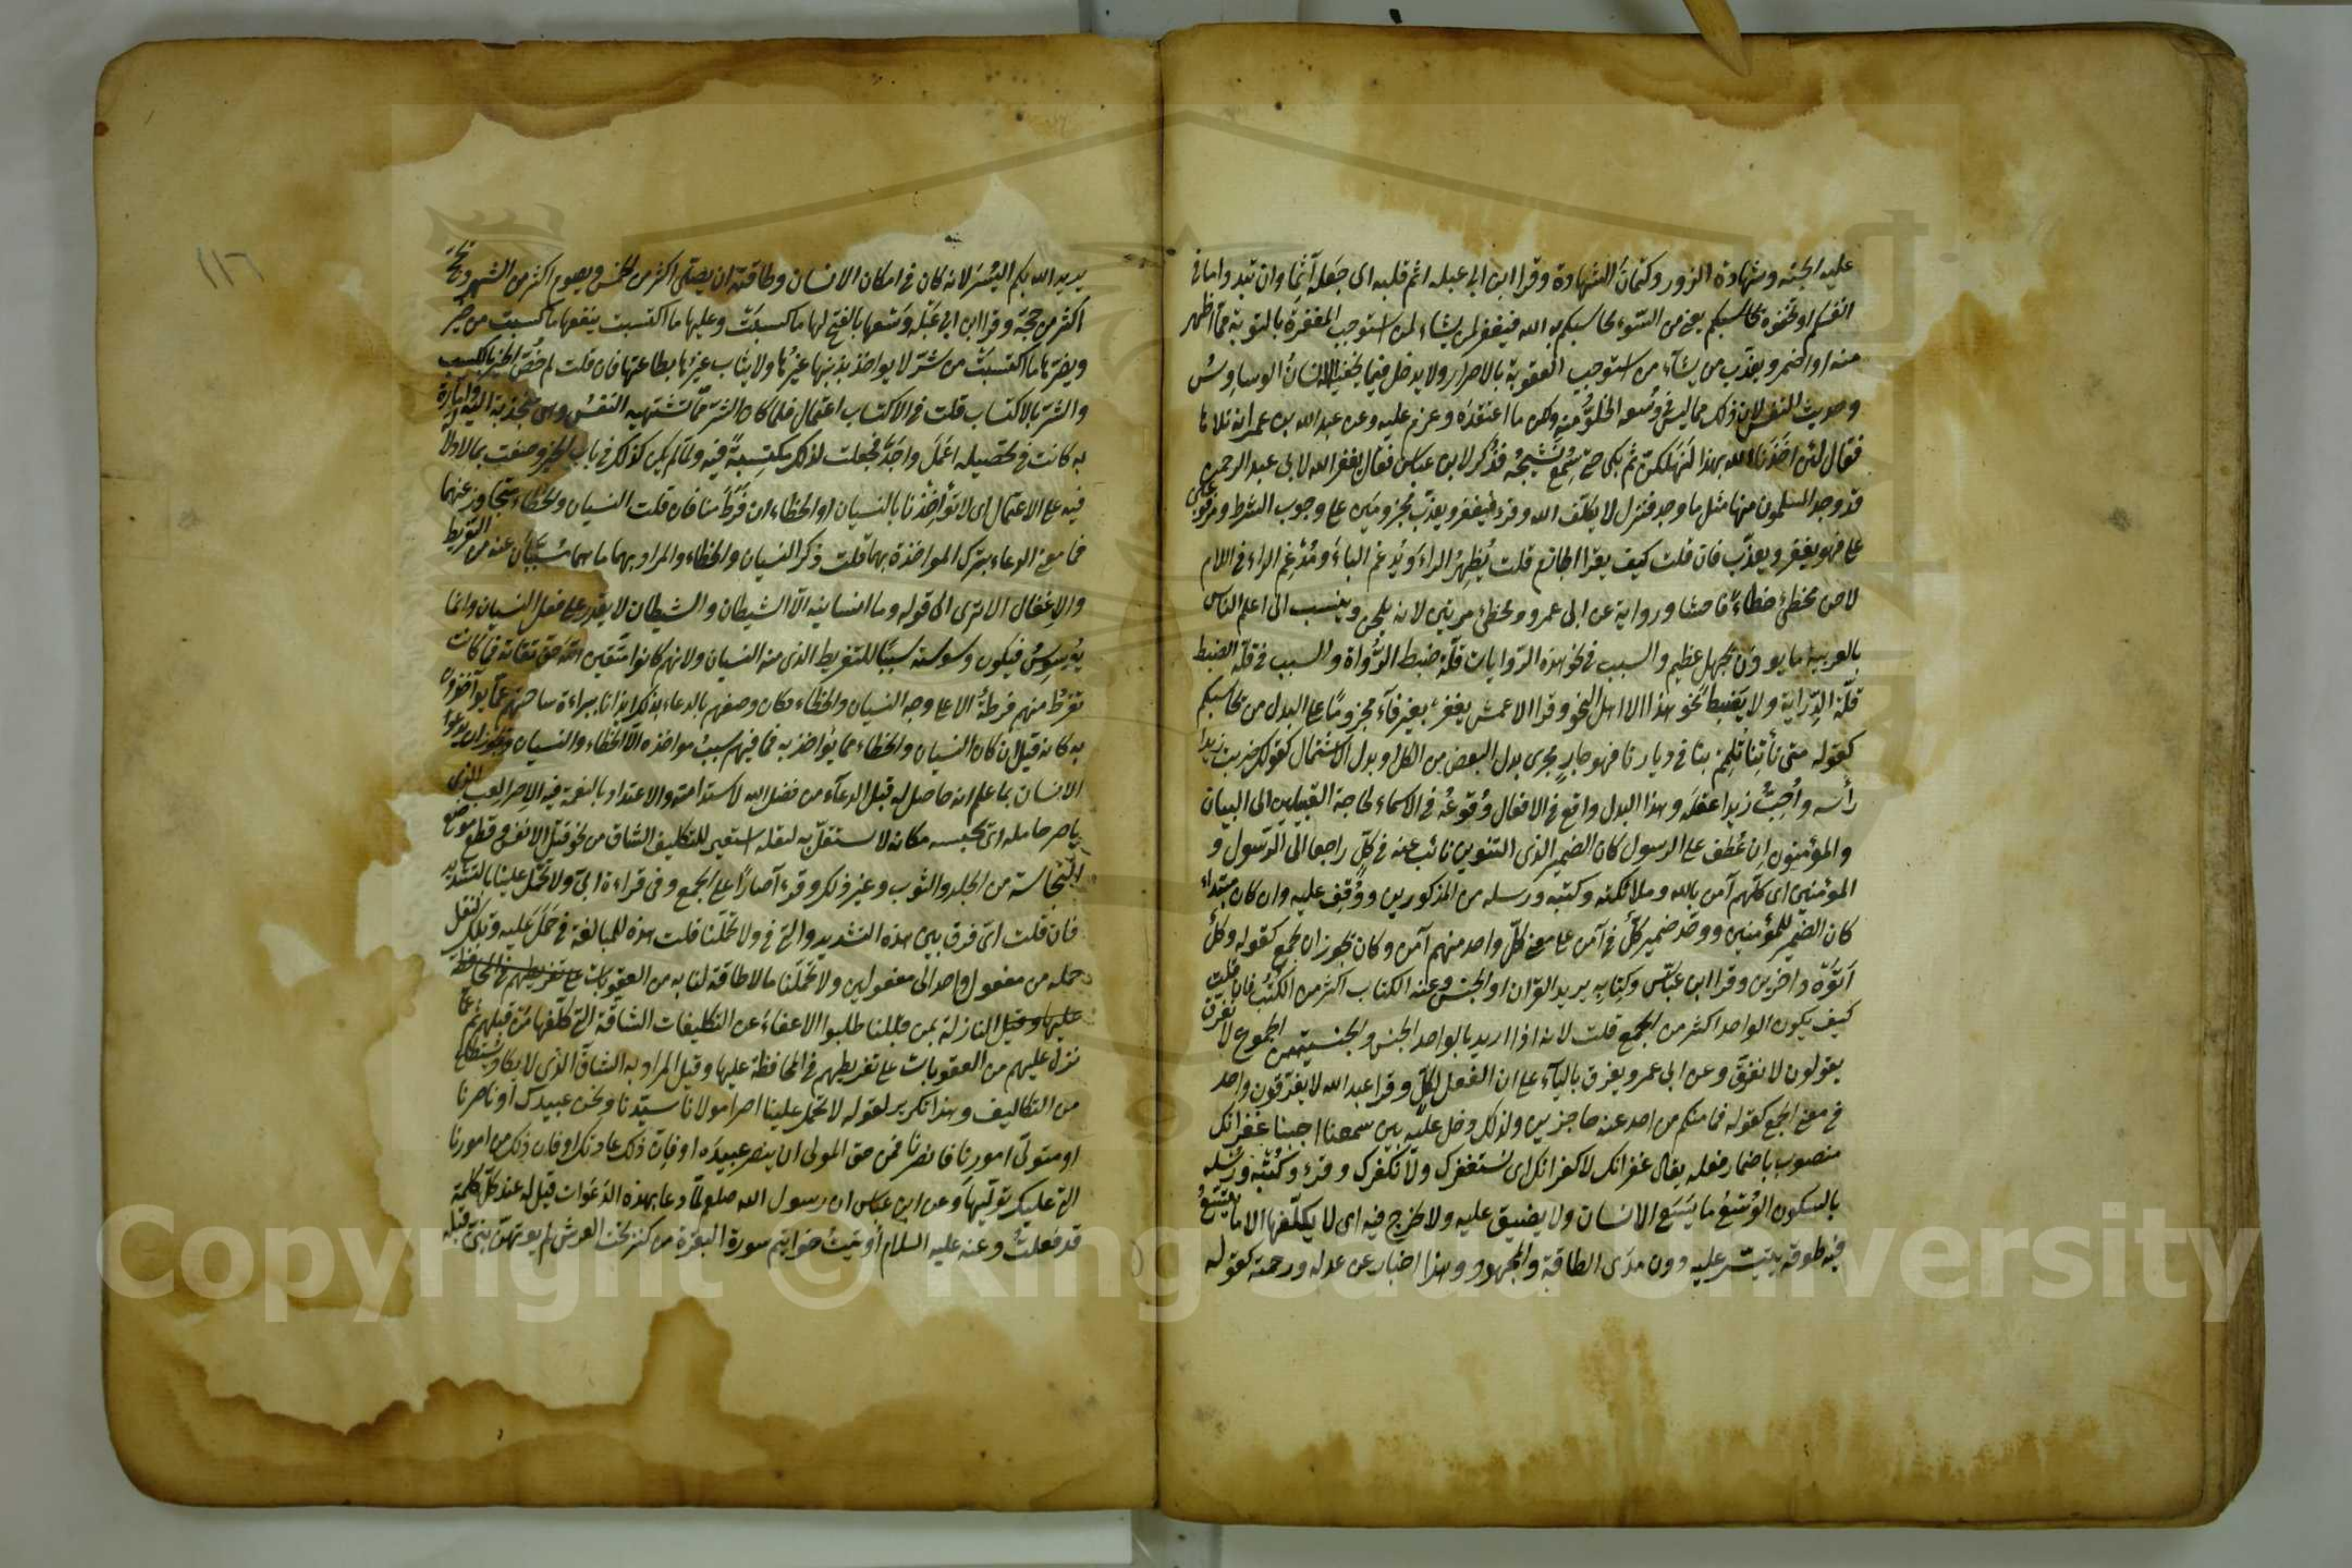 عليه الجنة وشهادة الزور وكتمان الشهادة وقرا ابن ابي عبلة اثم قلبه اى جعله آثما وان تبدوا ما فى
انفسكم او تخفوه يحاسبكم يعنى من السوء يحاسبكم به الله فيغفر لمن يشاء لمن استوجب المغفرة بالتوبة مما اظهر
منه او اضمر ويعذب من يشاء من استوجب العقوبة بالاصرار ولا يدخل فيما يخفيه الانسان الوساوس
وحديث النفس لان ذلك مما ليس فى وسعه الخلو منه ولكن ما اعتقده وعزم عليه وعن عبد الله بن عمر انه تلاها
فقال لئن اخذنا الله بهذا لنهلكن ثم بكى حتى سمع نشيجه فذكر لابن عباس فقال يغفر الله لابى عبد الرحمن
قد وجد المسلمون منها مثل ما وجد فنزل لا يكلف الله وقرئ فيغفر ويعذب مجزومين على وجوب الشرط ومرفوعين
على فهو يغفر ويعذب فان قلت كيف يقرا الجازم قلت يظهر الراء ويدغم الباء ومدغم الراء فى اللام
لاحن مخطئ خطاء فاحشا ورواية عن ابى عمرو مخطئ مرتين لانه يلحن وينسب الى اعلم الناس
بالعربية ما يوذن بجهل عظيم والسبب فى نحو هذه الروايات قلة ضبط الرواة والسبب فى قلة الضبط
قلة الدراية ولا يضبط نحو هذا الا اهل النحو وقرا الاعمش يغفر بغير فاء مجزوما على البدل من يحاسبكم
كقوله متى تأتنا تلمم بنا فى ديارنا فهو جار مجرى بدل البعض من الكل او بدل الاشتمال كقولك ضربت زيدا
رأسه واحب زيدا عقله وهذا البدل واقع فى الافعال وقوعه فى الاسماء لحاجة القبيلين الى البيان
والمؤمنون ان عطف على الرسول كان الضمير الذى التنوين نائب عنه فى كل راجعا الى الرسول و
المؤمنين اى كلهم آمن بالله وملائكته وكتبه ورسله من المذكورين ووقف عليه وان كان مبتداء
كان الضمير للمؤمنين ووحد ضمير كل فى آمن على معنى كل واحد منهم آمن وكان يجوز ان يجمع كقوله وكل
اتوه داخرين وقرا ابن عباس وكتابه يريد القرآن او الجنس وعنه الكتاب اكثر من الكتب فان قلت
كيف يكون الواحد اكثر من الجمع قلت لانه اذا اريد بالواحد الجنس والجنسية الجموع لا نفرق
يقولون لا نفرق وعن ابى عمرو يفرق بالياء على ان الفعل لكل وقرا عبد الله لا يفرقون واحد
فى معنى الجمع كقوله فما منكم من احد عنه حاجزين ولذلك دخل عليه بين سمعنا اجبنا غفرانك
منصوب باضمار فعله يقال غفرانك لا كفرانك اى نستغفرك ولا نكفرك وقرئ وكتبه ورسله
بالسكون الوسع ما يسع الانسان ولا يضيق عليه ولا يحرج فيه اى لا يكلفها الا ما يتسع
فيه طوقه يتيسر عليه دون مدى الطاقة والمجهود وهذا اخبار عن عدله ورحمته كقوله
١١٦
يريد الله بكم اليسر لانه كان فى امكان الانسان وطاقته ان يصلى اكثر من الخمس ويصوم اكثر من الشهر ويحج
اكثر من حجة وقرا ابن ابي عبلة وسعها بالفتح لها ما كسبت وعليها ما اكتسبت ينفعها ما كسبت من خير
ويضرها ما اكتسبت من شر لا يواخذ بذنبها غيرها ولا يثاب غيرها بطاعتها فان قلت لم خص الخير بالكسب
والشر بالاكتساب قلت فى الاكتساب اعتمال فلما كان الشر مما تشتهيه النفس وهى منجذبة اليه وامارة
به كانت فى تحصيله اعمل واجد فجعلت لذلك مكتسبة فيه ولما لم يكن كذلك فى باب الخير وصفت بما لا دلالة
فيه على الاعتمال اى لا تؤاخذنا بالنسيان او الخطاء ان فرط منا فان قلت النسيان والخطاء متجاوز عنهما
فما معنى الدعاء بترك المواخذة بهما قلت ذكر النسيان والخطاء والمراد بهما ما هما مسببان عنه من التفريط
والاغفال الا ترى الى قوله وما انسانيه الا الشيطان والشيطان لا يقدر على فعل النسيان وانما
يوسوس فيكون وسوسته سببا للتفريط الذى منه النسيان ولانهم كانوا متقين الله حق تقاته فما كانت
تفرط منهم فرطة الا على وجه النسيان والخطاء فكان وصفهم بالدعاء بذلك ايذانا ببراءة ساحتهم عما يؤاخذون
به كانه قيل ان كان النسيان والخطاء مما يؤاخذ به فما فيهم سبب مواخذه الا الخطاء والنسيان ويجوز ان يدعو
الانسان بما علم انه حاصل له قبل الدعاء من فضل الله لاستدامته والاعتداد بالنعمة فيه الاصر العبء الذى
ياصر حامله اى يحبسه مكانه لا يستقل به لثقله استعير للتكليف الشاق من نحو قتل الانفس وقطع موضع
النجاسة من الجلد والثوب وغير ذلك وقرء آصارا على الجمع وفى قراءة ابى ولا تحمل علينا بالتشديد
فان قلت اى فرق بين هذه التشديد والتى فى ولا تحملنا قلت هذه للمبالغة فى حمل عليه وتلك لنقل
حمله من مفعول واحد الى مفعولين ولا تحملنا ما لا طاقة لنا به من العقوبات
النازلة بمن قبلنا طلبوا الاعفاء عن التكليفات الشاقة التى كلفها من قبلهم ثم عما
نزل عليهم من العقوبات على تفريطهم فى المحافظة عليها وقيل المراد به الشاق الذى لا يكاد يستطاع
من التكاليف وهذا تكرير لقوله لا تحمل علينا اصرا مولانا سيدنا ونحن عبيدك او ناصرنا
او متولى امورنا فانصرنا فمن حق المولى ان ينصر عبيده او فان ذلك عادتك او فان ذلك من امورنا
التى عليك توليها وعن ابن عباس ان رسول الله صلعم لما دعا بهذه الدعوات قيل له عند كل كلمة
قد فعلت وعنه عليه السلام اوتيت خواتيم سورة البقرة من كنز تحت العرش لم يؤتهن نبى قبلى
Copyright © King Saud University